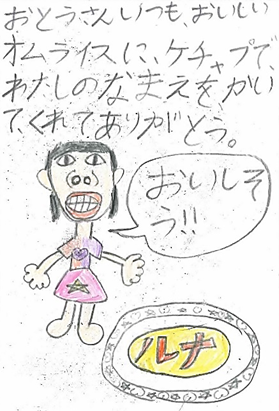 おとうさんいつも、おいしい
オムライスに、ケチャプで、
わたしのなまえを、かい
て、くれてありがとう。
おいしそ
う!!
ルナ